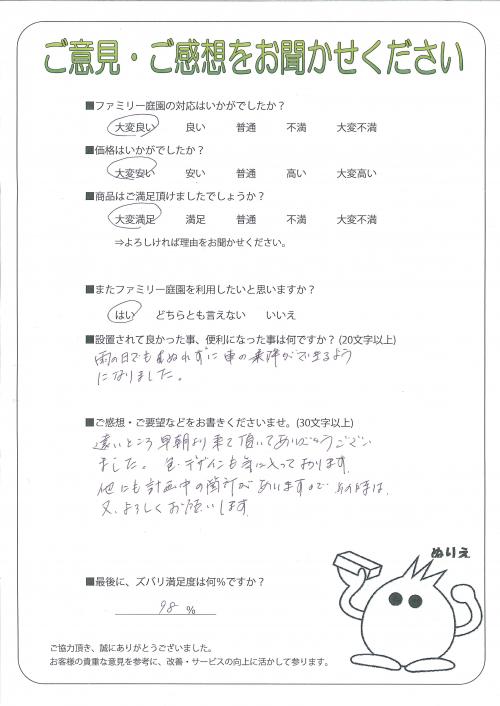 ご意見・ご感想をお聞かせください
■ファミリー庭園の対応はいかがでしたか？
大変良い 良い 普通 不満 大変不満
■価格はいかがでしたか？
大変安い 安い 普通 高い 大変高い
■商品はご満足頂けましたでしょうか？
大変満足 満足 普通 不満 大変不満
⇒よろしければ理由をお聞かせください。
■またファミリー庭園を利用したいと思いますか？
はい どちらとも言えない いいえ
■設置されて良かった事、便利になった事は何ですか？(20文字以上)
雨の日でもぬれずに車の乗降ができるよう
になりました。
■ご感想・ご要望などをお書きくださいませ。(30文字以上)
遠いところ早朝より来て頂いてありがとうござい
ました。色・デザインも気に入っております。
他にも計画中の箇所がありますので その時は
又、よろしくお願いします。
ぬりえ
■最後に、ズバリ満足度は何%ですか？
98 %
ご協力頂き、誠にありがとうございました。
お客様の貴重な意見を参考に、改善・サービスの向上に活かして参ります。